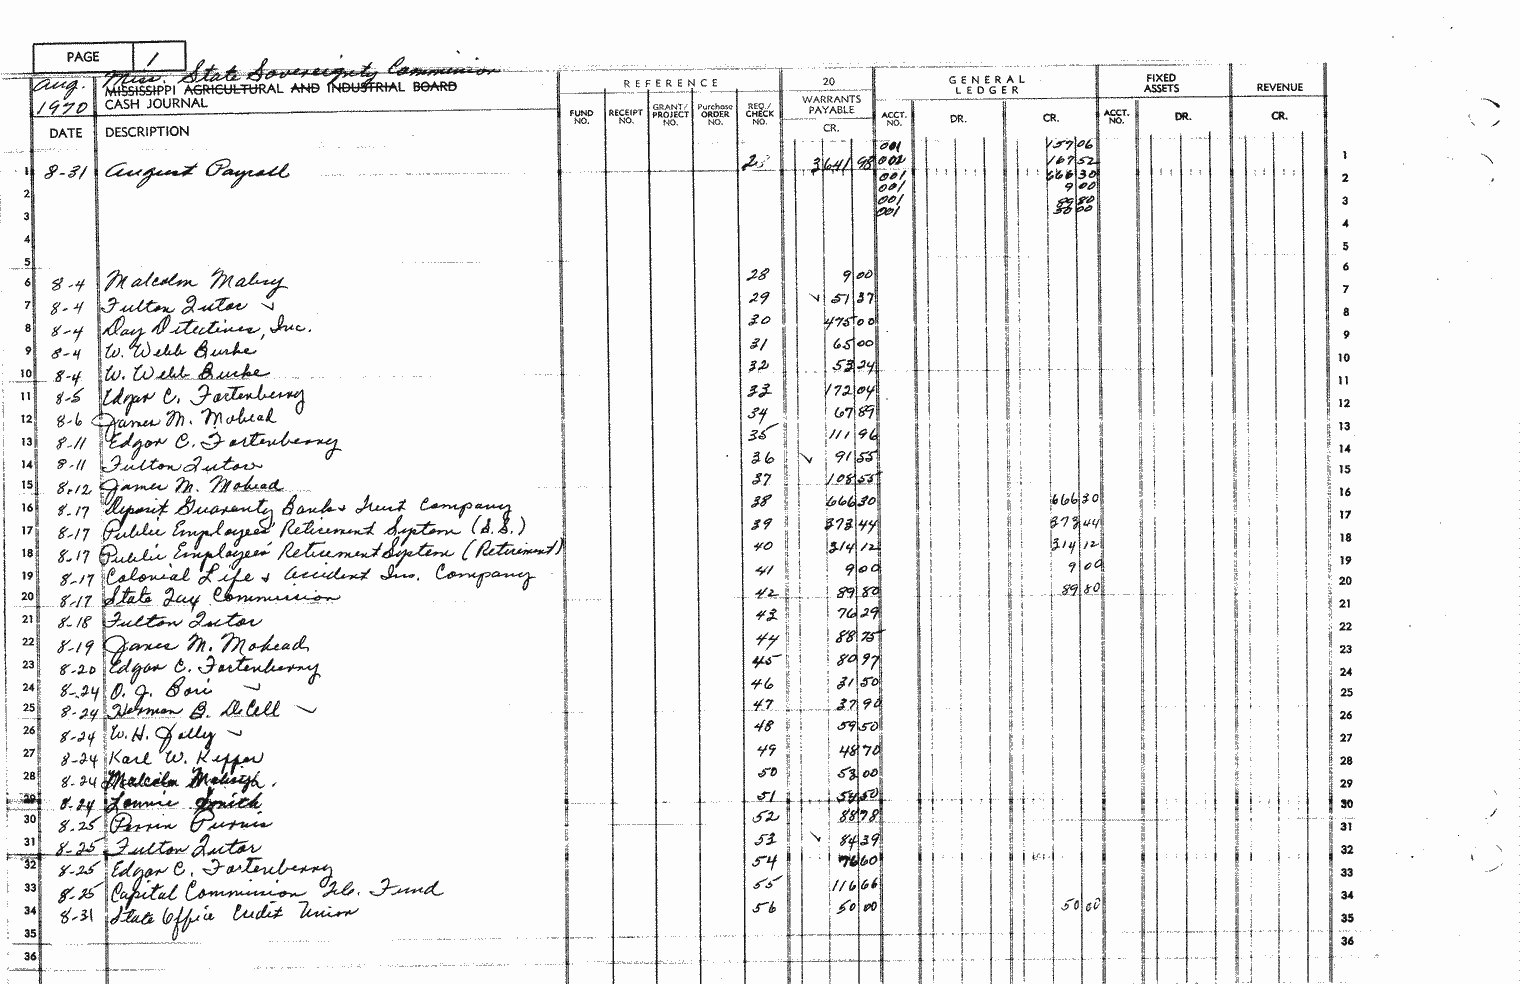 PAGE 1
Miss. State Sovereignty Commission
Aug. MISSISSIPPI AGRICULTURAL AND INDUSTRIAL BOARD
1970 CASH JOURNAL
REFERENCE 20 GENERAL LEDGER FIXED ASSETS REVENUE
WARRANTS PAYABLE
DATE DESCRIPTION FUND NO. RECEIPT NO. GRANT/PROJECT NO. Purchase ORDER NO. REQ./CHECK NO. CR. ACCT. NO. DR. CR. ACCT. NO. DR. CR.
001 157 06
1 8-31 August Payroll 3641 98 002 167 52 1
001 666 30 2
2 001 9 00
001 89 80 3
3 001 50 00
4
4
5
5
6
6 8-4 Malcolm Mabry 28 9 00
7 8-4 Fulton Tutor ✓ 29 ✓ 51 37 7
8 8-4 Day Detectives, Inc. 30 475 00 8
9 8-4 W. Webb Burke 31 65 00 9
10 8-4 W. Webb Burke 32 53 24 10
11 8-5 Edgar C. Fortenberry 33 172 04 11
12 8-6 James M. Mohead 34 67 89 12
13 8-11 Edgar C. Fortenberry 35 111 96 13
14 8-11 Fulton Tutor 36 ✓ 91 55 14
15 8-12 James M. Mohead 37 108 55 15
16 8-17 Deposit Guaranty Bank & Trust Company 38 666 30 666 30 16
17 8-17 Public Employees' Retirement System (S.S.) 39 373 44 373 44 17
18 8-17 Public Employees' Retirement System (Retirement) 40 314 12 314 12 18
19 8-17 Colonial Life & Accident Ins. Company 41 9 00 9 00 19
20 8-17 State Tax Commission 42 89 80 89 80 20
21 8-18 Fulton Tutor 43 76 29 21
22 8-19 James M. Mohead 44 88 75 22
23 8-20 Edgar C. Fortenberry 45 80 97 23
24 8-24 O. J. Bori ✓ 46 31 50 24
25 8-24 Herman B. DeCell ✓ 47 37 90 25
26 8-24 W. H. Jolly ✓ 48 59 50 26
27 8-24 Karl W. Kepper 49 48 70 27
28 8-24 Malcolm Mabry 50 53 00 28
29 8-24 Lonnie Smith 51 54 50 29
30 8-25 Perrin Purvis 52 88 78 30
31 8-25 Fulton Tutor 53 ✓ 84 39 31
32 8-25 Edgar C. Fortenberry 54 76 60 32
33 8-25 Capital Commission Tele. Fund 55 116 66 33
34 8-31 State Office Credit Union 56 50 00 50 00 34
35 35
36 36